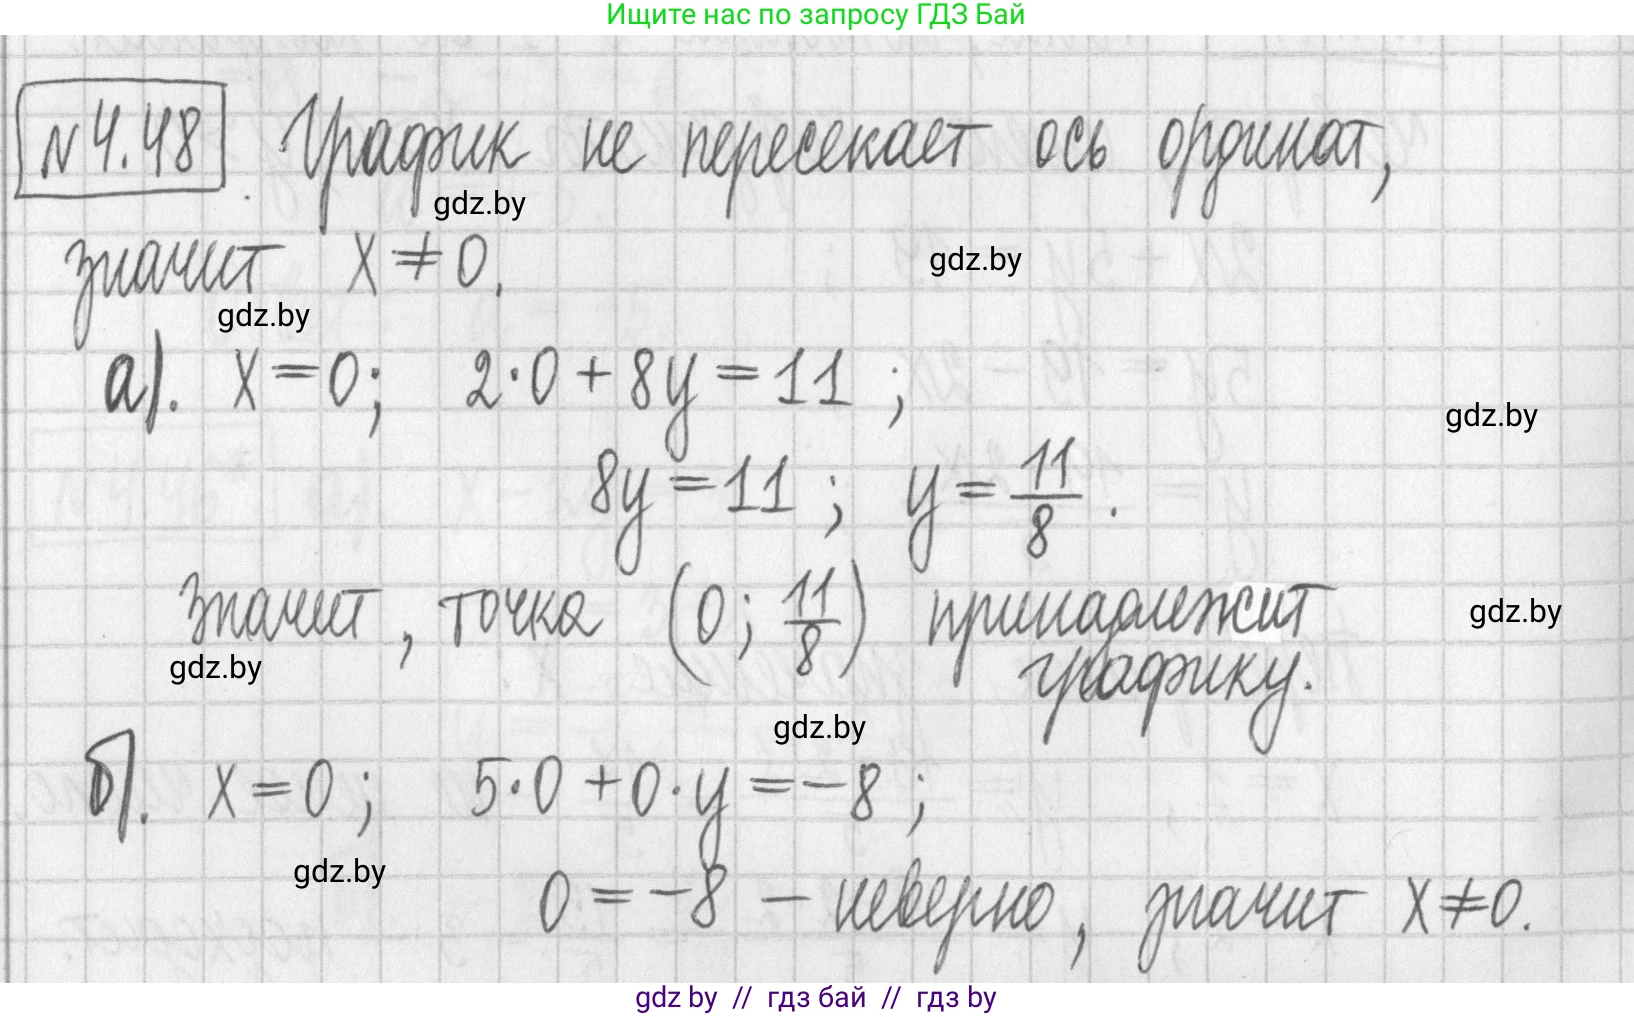 Ищите нас по запросу ГДЗ Бай
№4.48. График не пересекает ось ординат,
gdz.by
значит x ≠ 0.
gdz.by
gdz.by
а). x = 0; 2·0 + 8y = 11 ;
gdz.by
8y = 11 ; y = 11/8 .
Значит, точка (0; 11/8) принадлежит
gdz.by
графику.
gdz.by
gdz.by
б). x = 0; 5·0 + 0·y = -8 ;
gdz.by
0 = -8 - неверно, значит x ≠ 0.
gdz by // гдз бай // гдз by